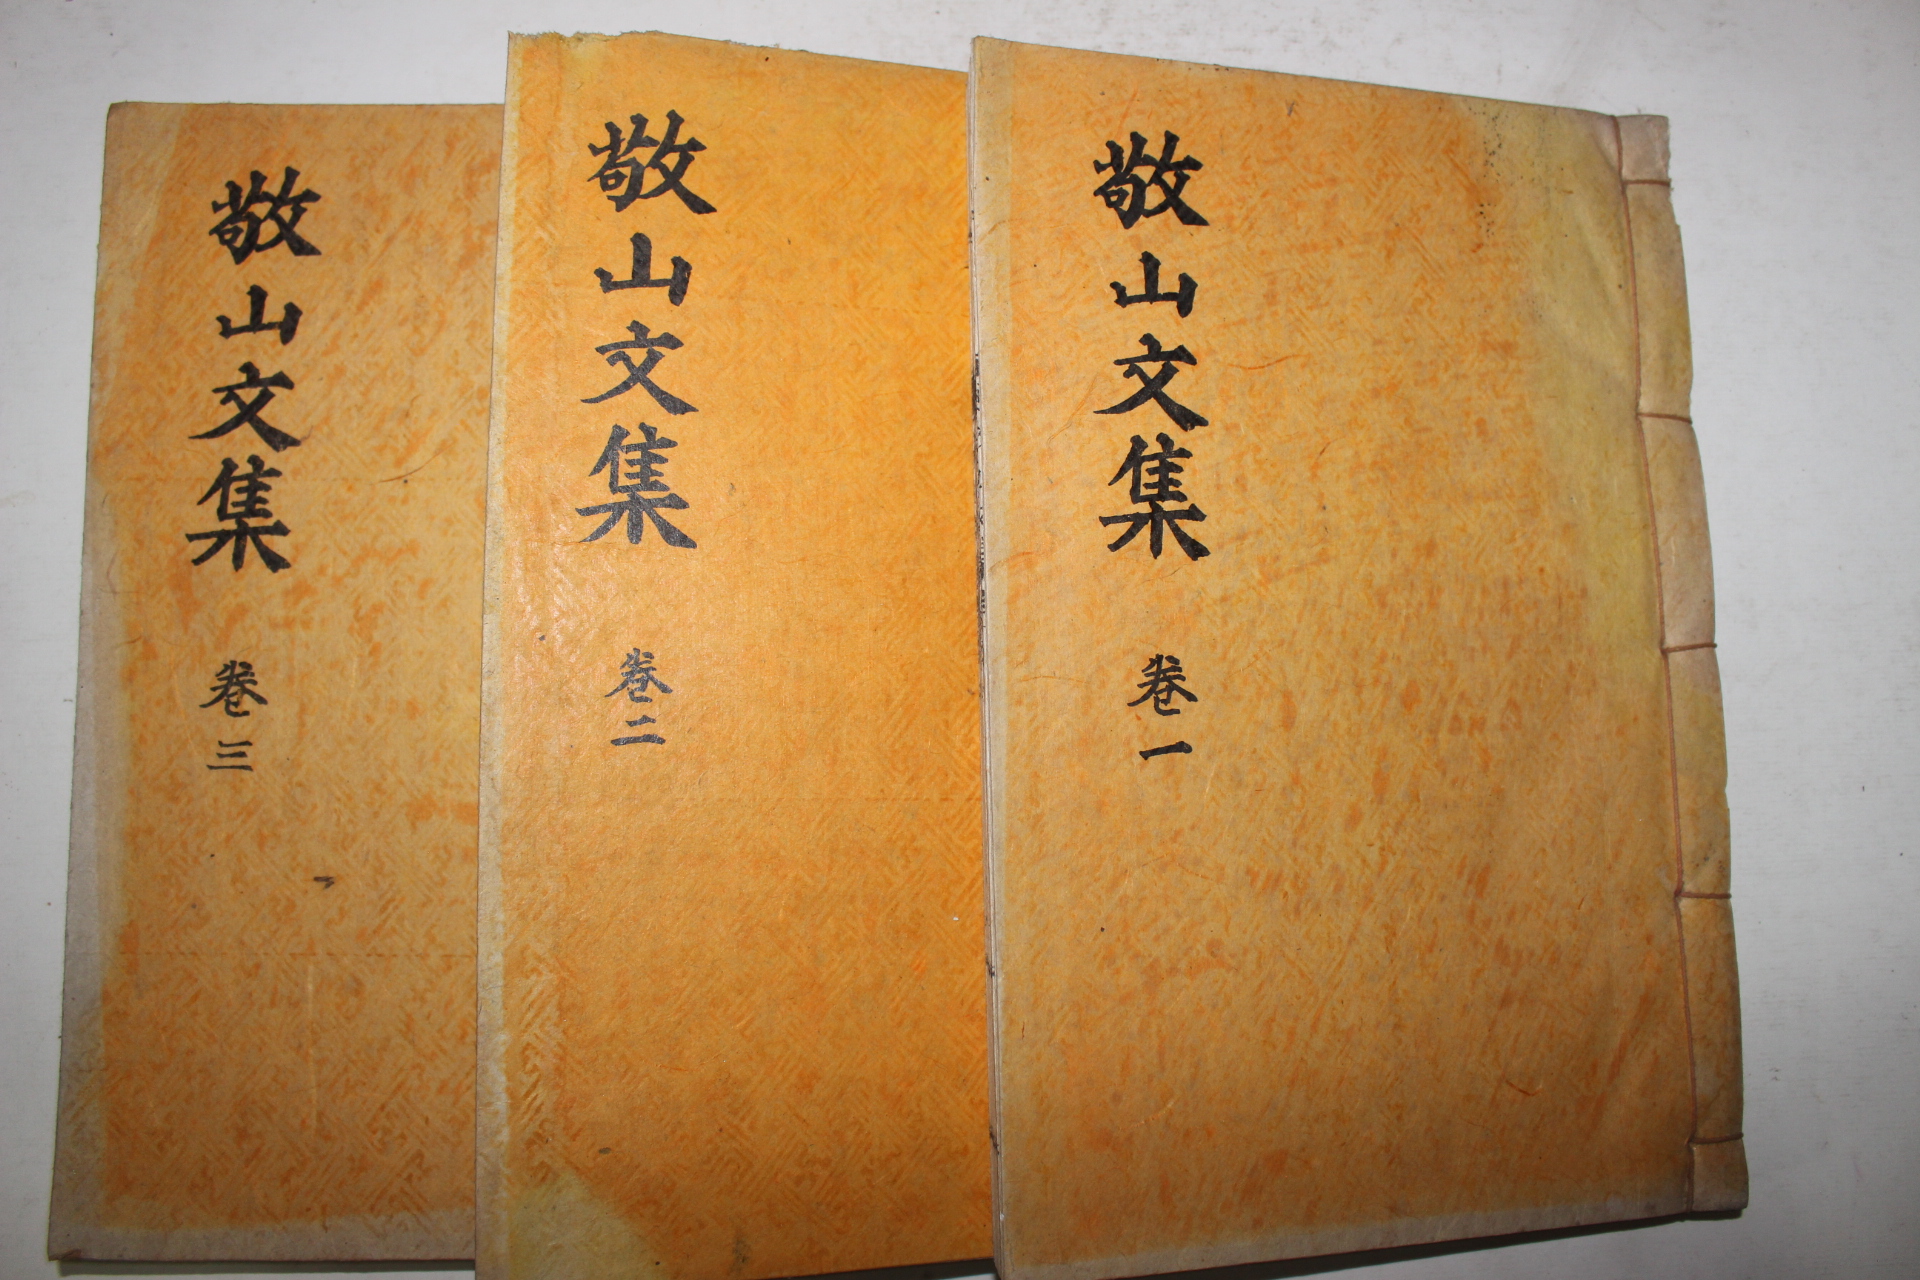 敬山文集 卷一
敬山文集 卷二
敬山文集 卷三